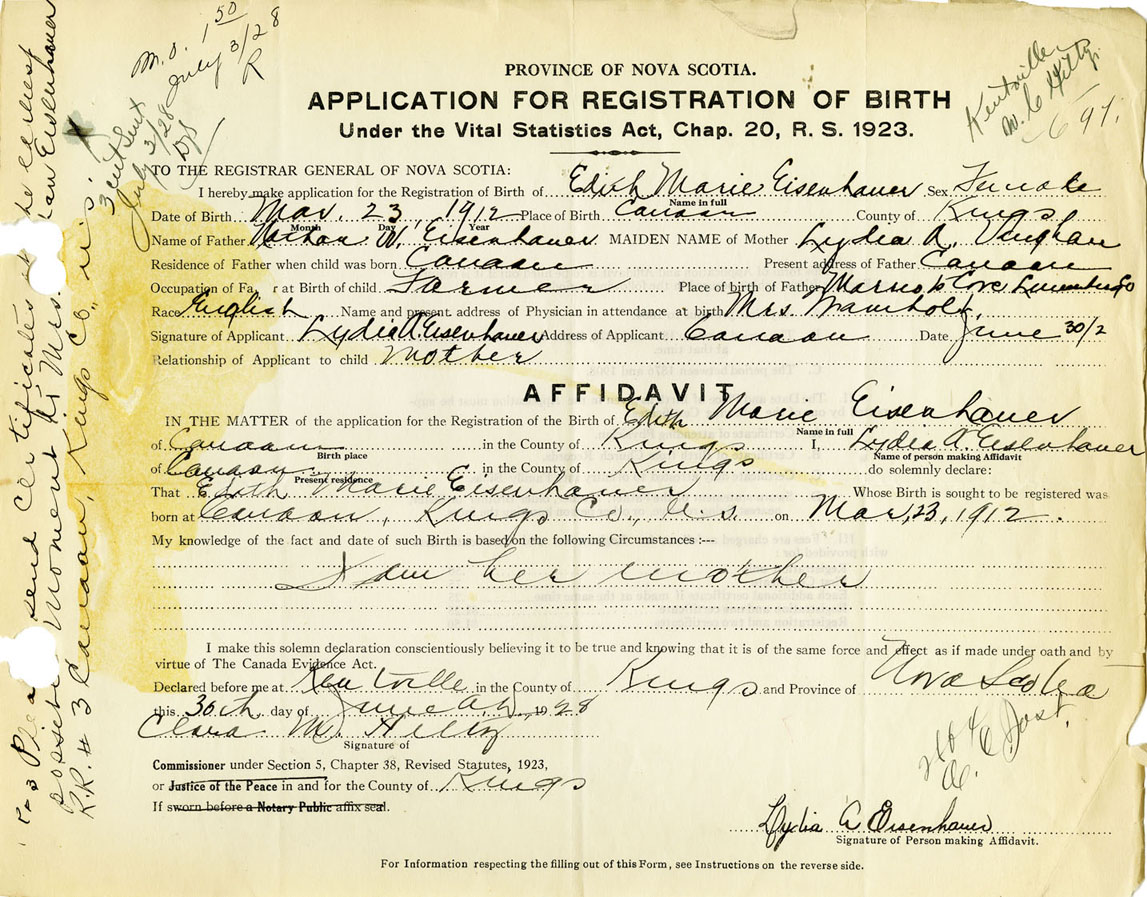 M.O. 1 50
July 3/28
R
3 cent Sent
July 3/28
Kentville
97.
PROVINCE OF NOVA SCOTIA.
APPLICATION FOR REGISTRATION OF BIRTH
Under the Vital Statistics Act, Chap. 20, R. S. 1923.
TO THE REGISTRAR GENERAL OF NOVA SCOTIA:
I hereby make application for the Registration of Birth of Edith Marie Eisenhauer Sex Female
Name in full
Date of Birth Mar. 23, 1912 Place of Birth Canaan County of Kings
Month Day Year
Name of Father Nathan W. Eisenhauer MAIDEN NAME of Mother Lydia A. Vaughan
Residence of Father when child was born Canaan Present address of Father Canaan
Occupation of Fa r at Birth of child Farmer Place of birth of Father Cove Lunenburg Co
Race English Name and present address of Physician in attendance at birth Mrs.
Signature of Applicant Lydia A. Eisenhauer Address of Applicant Canaan Date June 30/2
Relationship of Applicant to child Mother
AFFIDAVIT
IN THE MATTER of the application for the Registration of the Birth of Edith Marie Eisenhauer
Name in full
of Canaan in the County of Kings I, Lydia A Eisenhauer
Birth place Name of person making Affidavit
of Canaan in the County of Kings do solemnly declare:
Present residence
That Edith Marie Eisenhauer Whose Birth is sought to be registered was
born at Canaan, Kings Co., N.S. on Mar, 23, 1912.
My knowledge of the fact and date of such Birth is based on the following Circumstances :---
I am her mother
I make this solemn declaration conscientiously believing it to be true and knowing that it is of the same force and effect as if made under oath and by
virtue of The Canada Evidence Act.
Declared before me at Kentville in the County of Kings and Province of Nova Scotia
this 30th day of June A.D. 1928
Clara M. Hiltz
Signature of
Commissioner under Section 5, Chapter 38, Revised Statutes, 1923,
or Justice of the Peace in and for the County of Kings
If sworn before a Notary Public affix seal.
Lydia A Eisenhauer
Signature of Person making Affidavit.
For Information respecting the filling out of this Form, see Instructions on the reverse side.
send Certificates at the earliest
Moment to Mrs. Nathan Eisenhauer
R.R. # 3 Canaan, Kings Co., N.S.